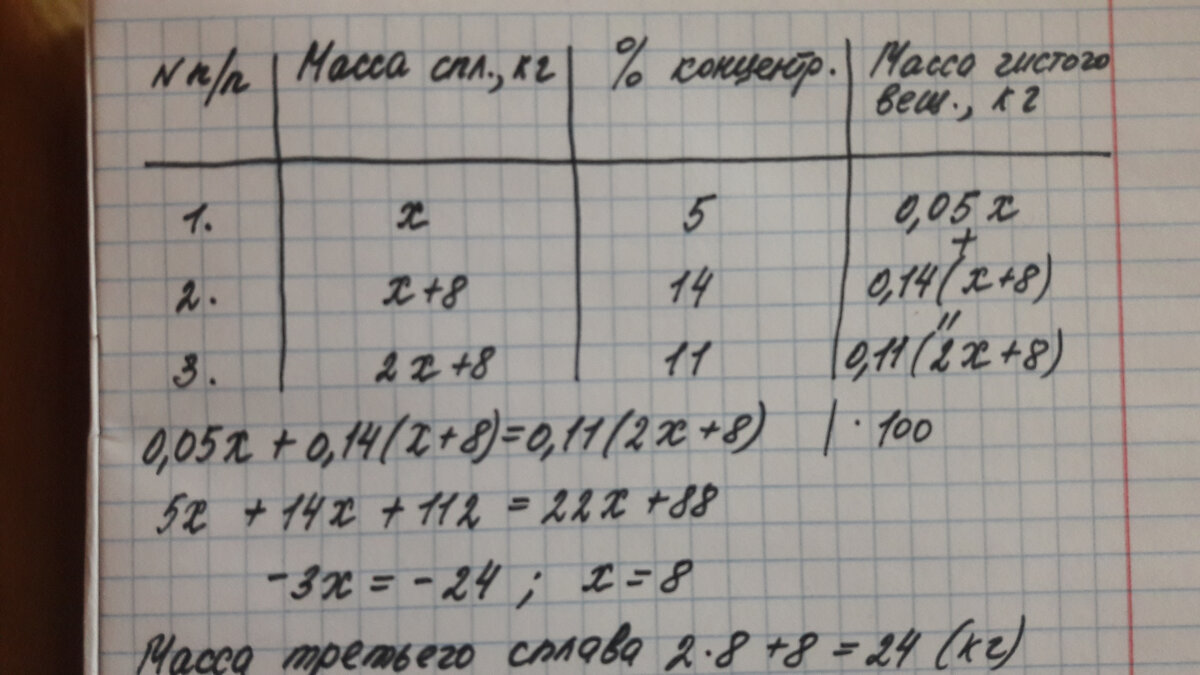 N п/п Масса спл., кг % концентр. Масса чистого вещ., кг
1. x 5 0,05x
+
2. x+8 14 0,14(x+8)
"
3. 2x+8 11 0,11(2x+8)
0,05x + 0,14(x+8)=0,11(2x+8) | · 100
5x + 14x + 112 = 22x +88
-3x = - 24 ; x = 8
Масса третьего сплава 2·8 +8 = 24 (кг)